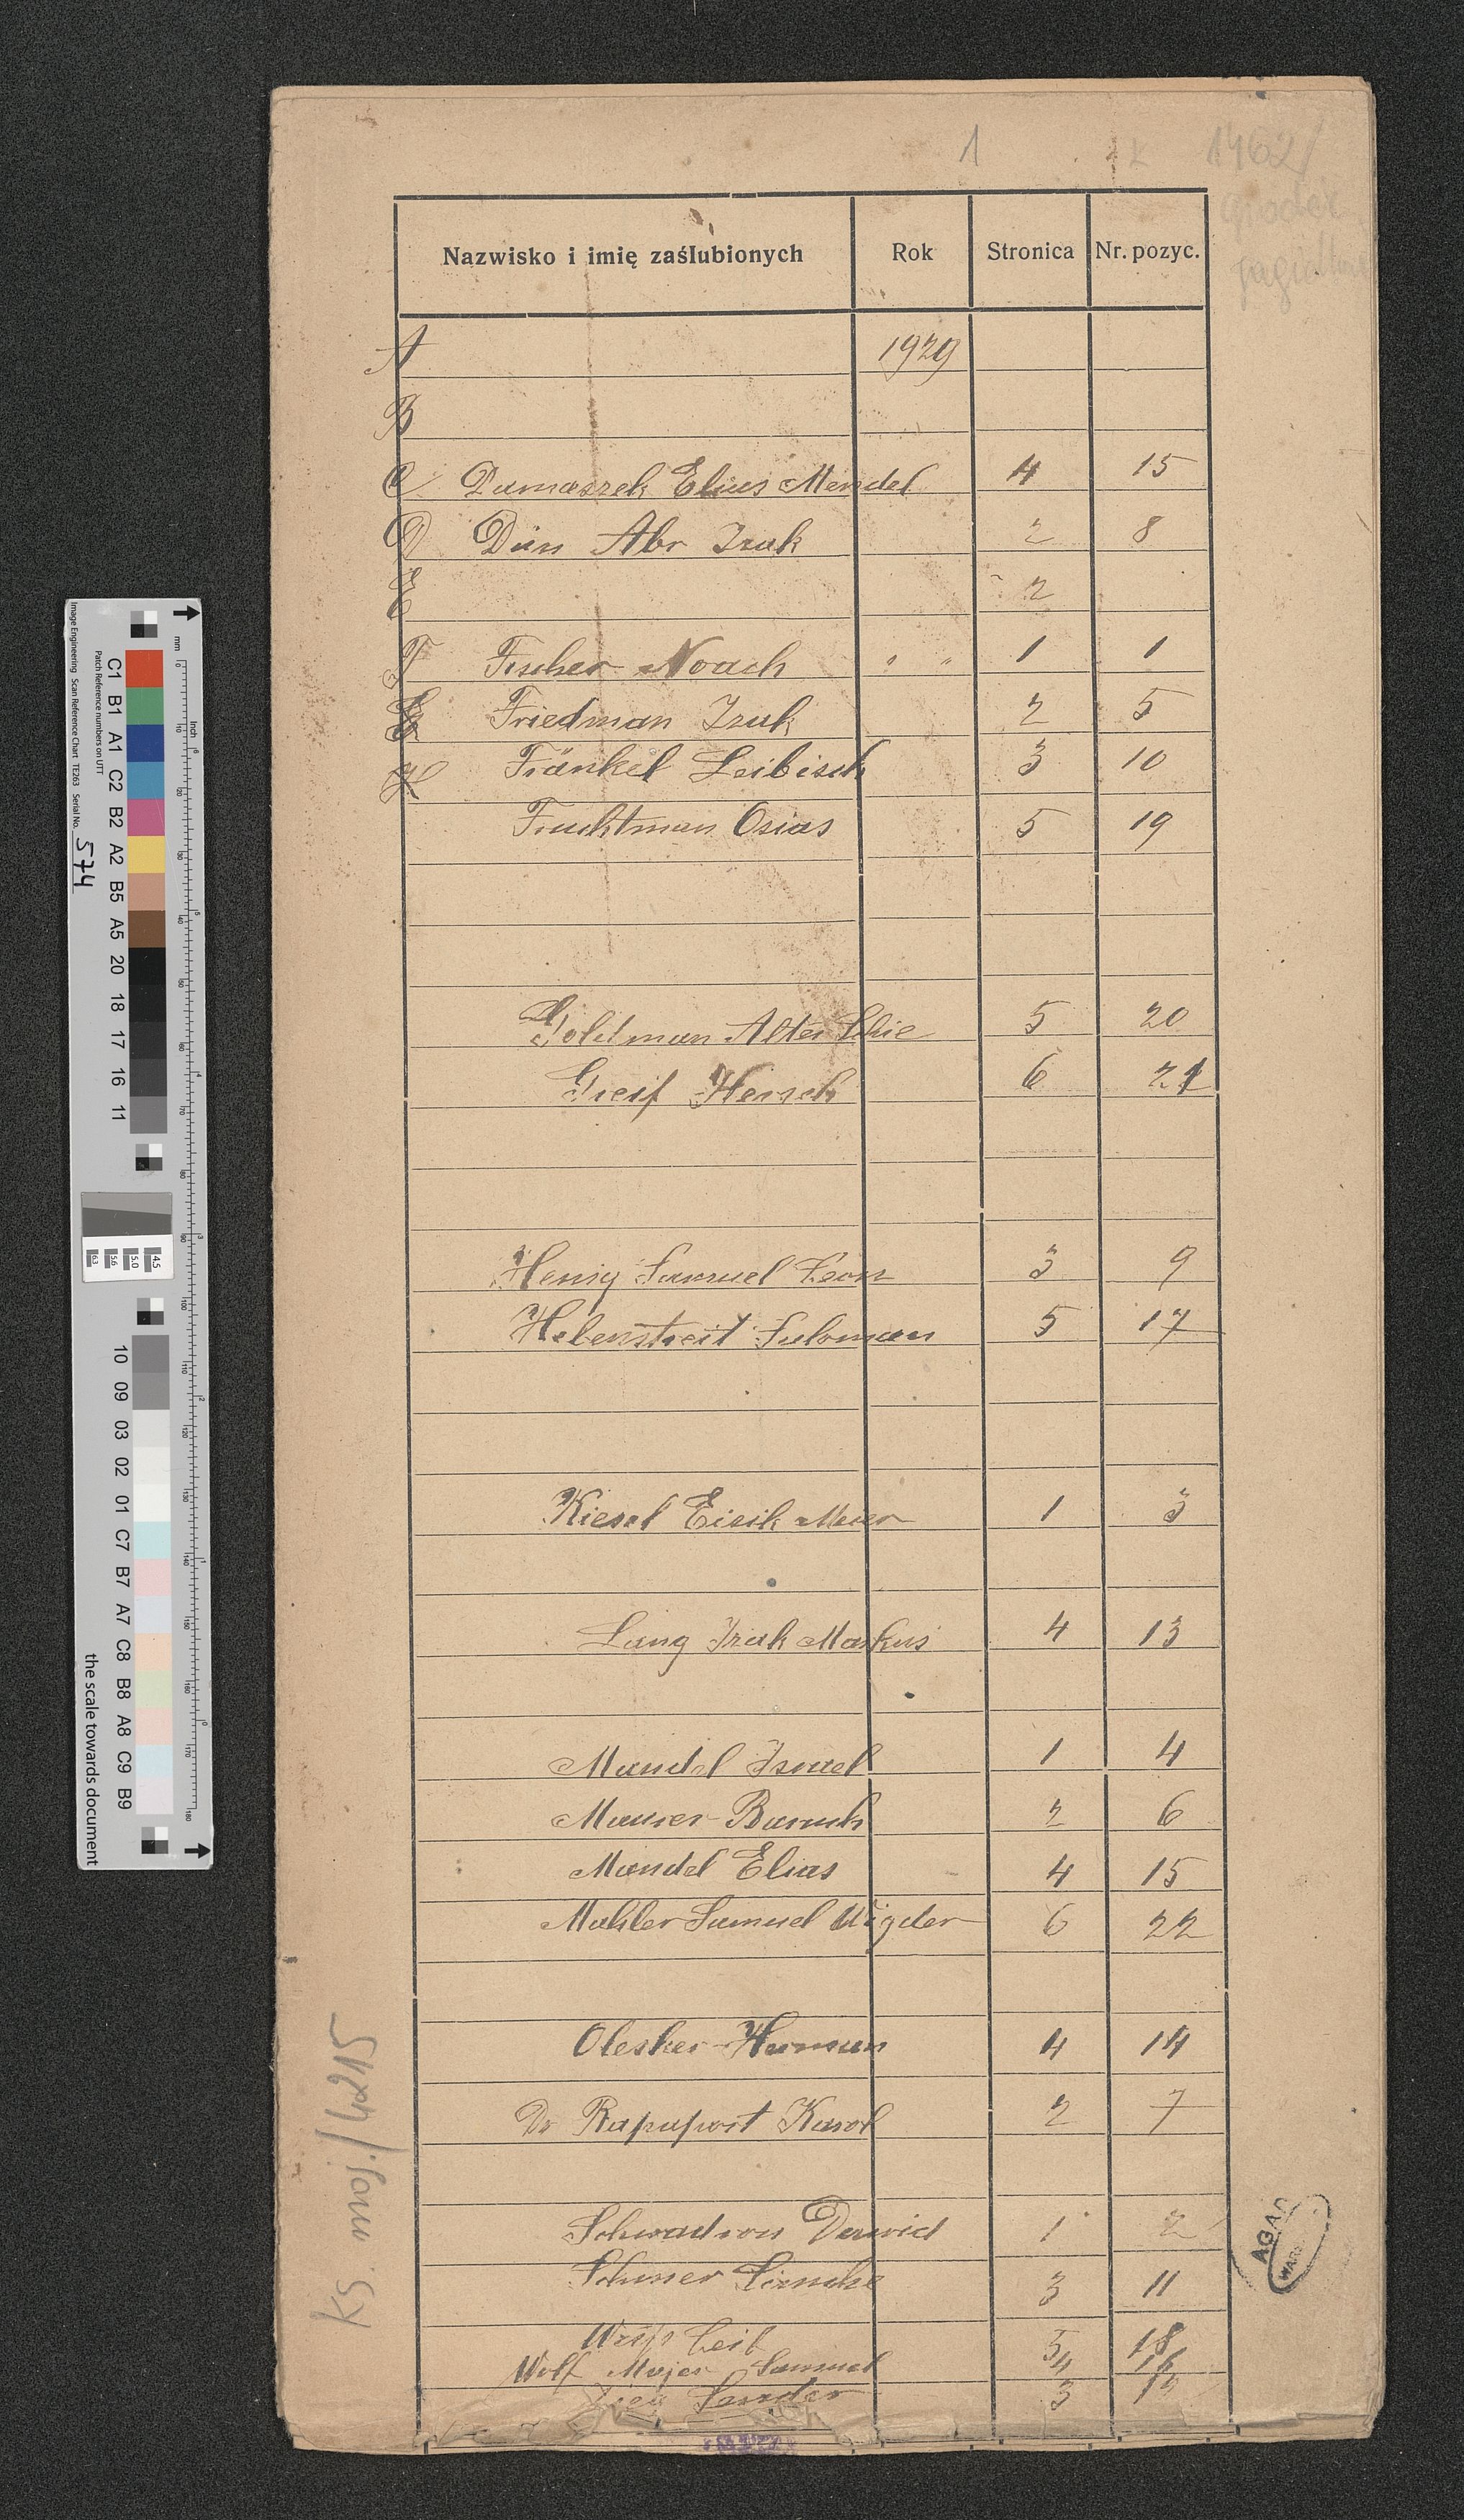 1
1462/
Nazwisko i imię zaślubionych Rok Stronica Nr. pozyc.
A 1929
B
C Damaszek Elias Mendel 4 15
D Dün Abr Izak 2 8
E 2
F Fischer Noach " " 1 1
G Friedman Izak 2 5
H Fränkel Leibisch 3 10
Fruchtman Osias 5 19
Goldman Alter Schie 5 20
Greif Hersch 6 21
Henig Samuel Leon 3 9
Hebenstreit Salomon 5 17
Kiesel Eisik Meier 1 3
Lang Izak Markus 4 13
Mandel Israel 1 4
Mauser Baruch 2 6
Mandel Elias 4 15
Mahler Samuel Wigder 6 22
Olesker Herman 4 14
Dr Rapaport Karol 2 7
Schwadron Dawid 1 2
Schmer Simche 3 11
Leib 5 18
Wolf Majer Samuel 4 16
Sender 3
AGAD
Image Engineering Scan Reference Chart TE263 Serial No. 574
Patch Reference numbers on UTT
C1 B1 A1 C2 B2 A2 B5 A5 20 18 17 16 11
10 09 03 02 01 C7 B7 A7 C8 B8 A8 C9 B9
the scale towards document
mm
inch